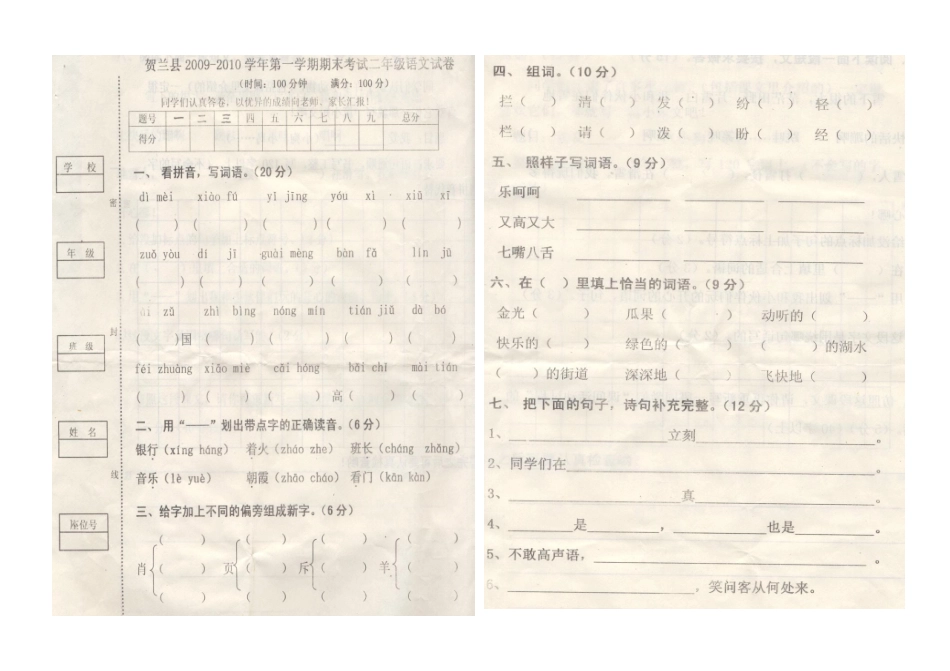 贺兰县2009-2010学年第一学期期末考试二年级语文试卷
(时间:100分钟 满分:100分)
同学们认真答卷,以优异的成绩向老师、家长汇报!
题号 一 二 三 四 五 六 七 八 九 总分
得分
学 校
年 级
班 级
姓 名
座位号
密
封
线
一、看拼音,写词语。(20分)
dì mèi xiào fú yǐ jīng yóu xì xiū xī
( ) ( ) ( ) ( ) ( )
zuǒ yòu dì jī guài mèng bàn fǎ lín jū
( ) ( ) ( ) ( ) ( )
zǔ zhì bìng nóng mín tián jiū dà bó
( )国 ( ) ( ) ( ) ( )
féi zhuàng xiǎo miè cǎi hóng bǎi chǐ mài tián
( ) ( ) ( ) 高( ) ( )
二、用“——”划出带点字的正确读音。(6分)
银行(xíng háng) 着火(zháo zhe) 班长(cháng zhǎng)
音乐(lè yuè) 朝霞(zhāo cháo) 看门(kān kàn)
三、给字加上不同的偏旁组成新字。(6分)
( ) ( ) ( ) ( )
肖( ) 页( ) 斥( ) 羊( )
( ) ( ) ( ) ( )
四、组词。(10分)
拦( ) 清( ) 发( ) 纷( ) 轻( )
栏( ) 请( ) 泼( ) 盼( ) 经( )
五、照样子写词语。(9分)
乐呵呵
又高又大
七嘴八舌
六、在( )里填上恰当的词语。(9分)
金光( ) 瓜果( ) 动听的( )
快乐的( ) 绿色的( ) ( )的湖水
( )的街道 深深地( ) 飞快地( )
七、把下面的句子,诗句补充完整。(12分)
1、____立刻____。
2、同学们在____。
3、____真____。
4、____是____,____也是____。
5、不敢高声语,____。
6、____,笑问客从何处来。